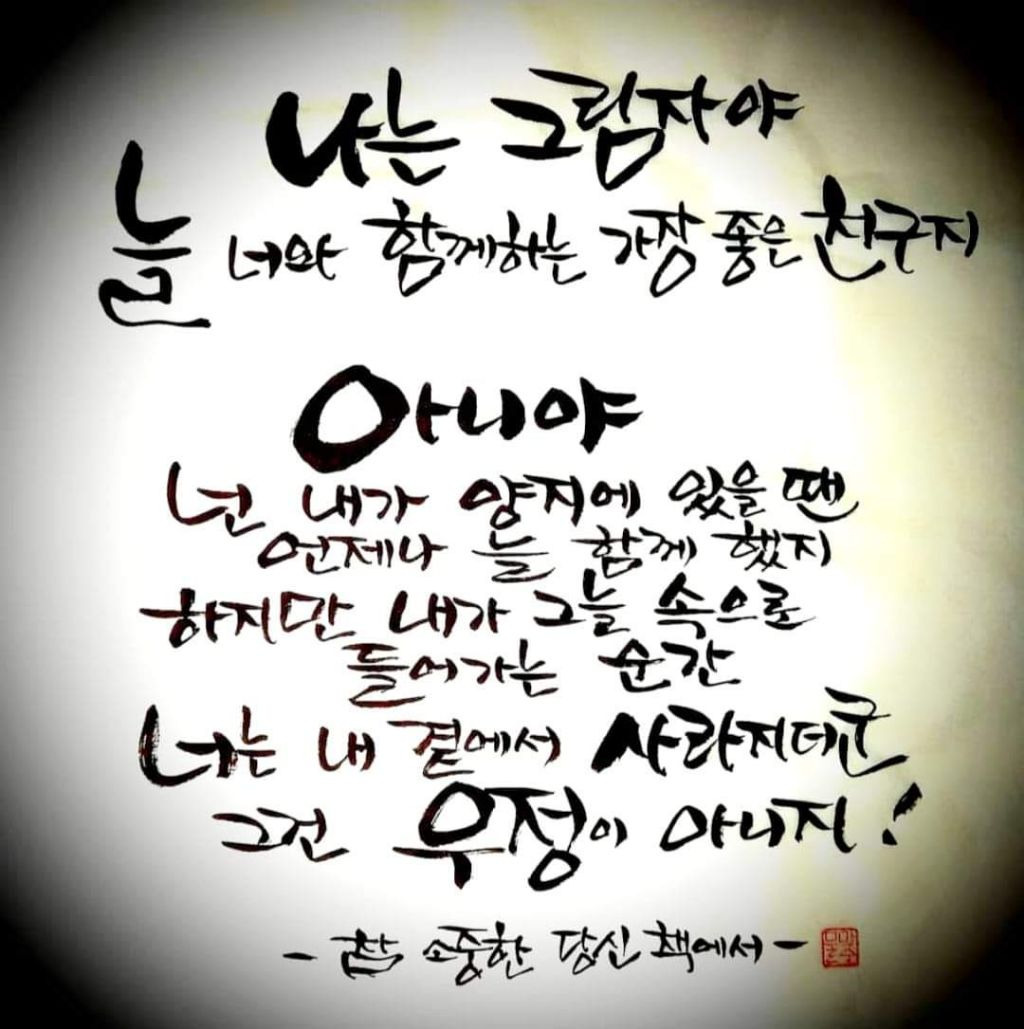 나는 그림자야
늘 너와 함께하는 가장 좋은 친구지
아니야
넌 내가 양지에 있을 땐
언제나 늘 함께 했지
하지만 내가 그늘 속으로
들어가는 순간
너는 내 곁에서 사라지더군
그건 우정이 아니지!
- 참 소중한 당신 책에서 -